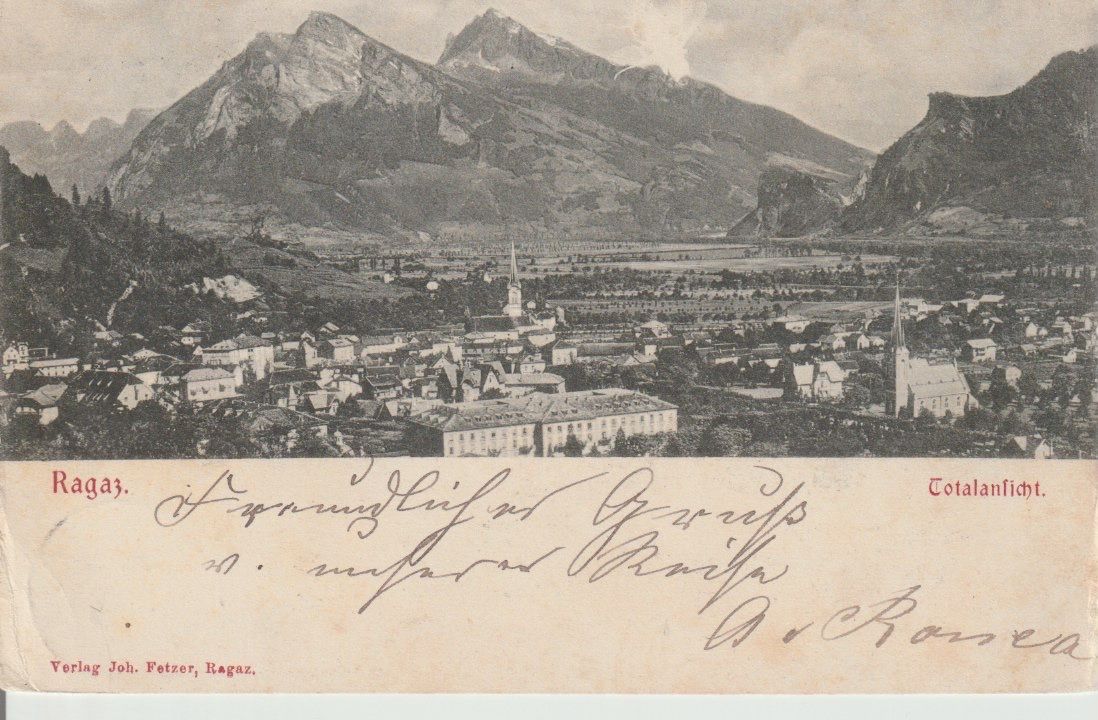 Ragaz.
Totalansicht.
Freundlicher Gruß
v. unserer Reise
Verlag Joh. Fetzer, Ragaz.